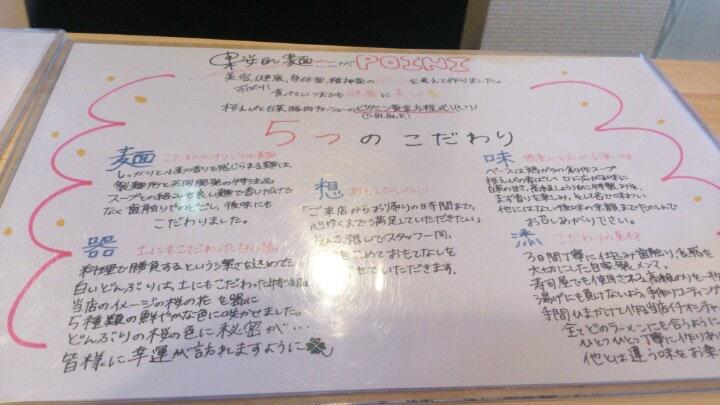 麺ここがPOINT
美容、健康、身体面、精神面の を考えて作りました。
ずばり!
食べていつまでも健康に美しく
桜えびと白菜、豚肉チャーシューのビタミン黄金方程式!(しき)
5つのこだわり
麺 こだわりのオリジナル麺
しっかりと小麦の香りを感じられる麺は、
製麺所と共同開発の特注品
スープとの絡みも良い麺で香いだけで
なく歯触りやのどごし、後味にも
こだわりました。
器 土にもこだわった白い器。
料理で勝負するという潔さを込めた
白いどんぶりは、土にもこだわった特注品
当店のイメージの桜の花を器に
5種類の鮮やかな色に咲かせました。
どんぶりの桜の色に秘密が…
皆様に幸運が訪れますように
想 おもてなしの心
「ご来店からお帰りの時間まで、
心ゆくまで満足していただきたい」
そんな想いでスタッフ一同、
をこめておもてなしを
せていただきます。
味
ベースは鶏がらの創作スープ
桜えびの香ばしく口に広がる旨味に
白菜の甘さ、
まず香りを楽しみ、
他にはない味の余韻までたんのう
お召しあがり下さい。
こだわりの素材
3日間丁寧に仕込み歯触り、食感を
大切にした自家製メンマ。
寿司屋でも使用される高級のりを一枚
湯汁にも負けないよう、手作りコーティング
手間ひまかけて作る当店イチオシチャ
全てどのラーメンにも合うように
ひとつひとつ丁寧に作りあ
他とは違う味をお楽